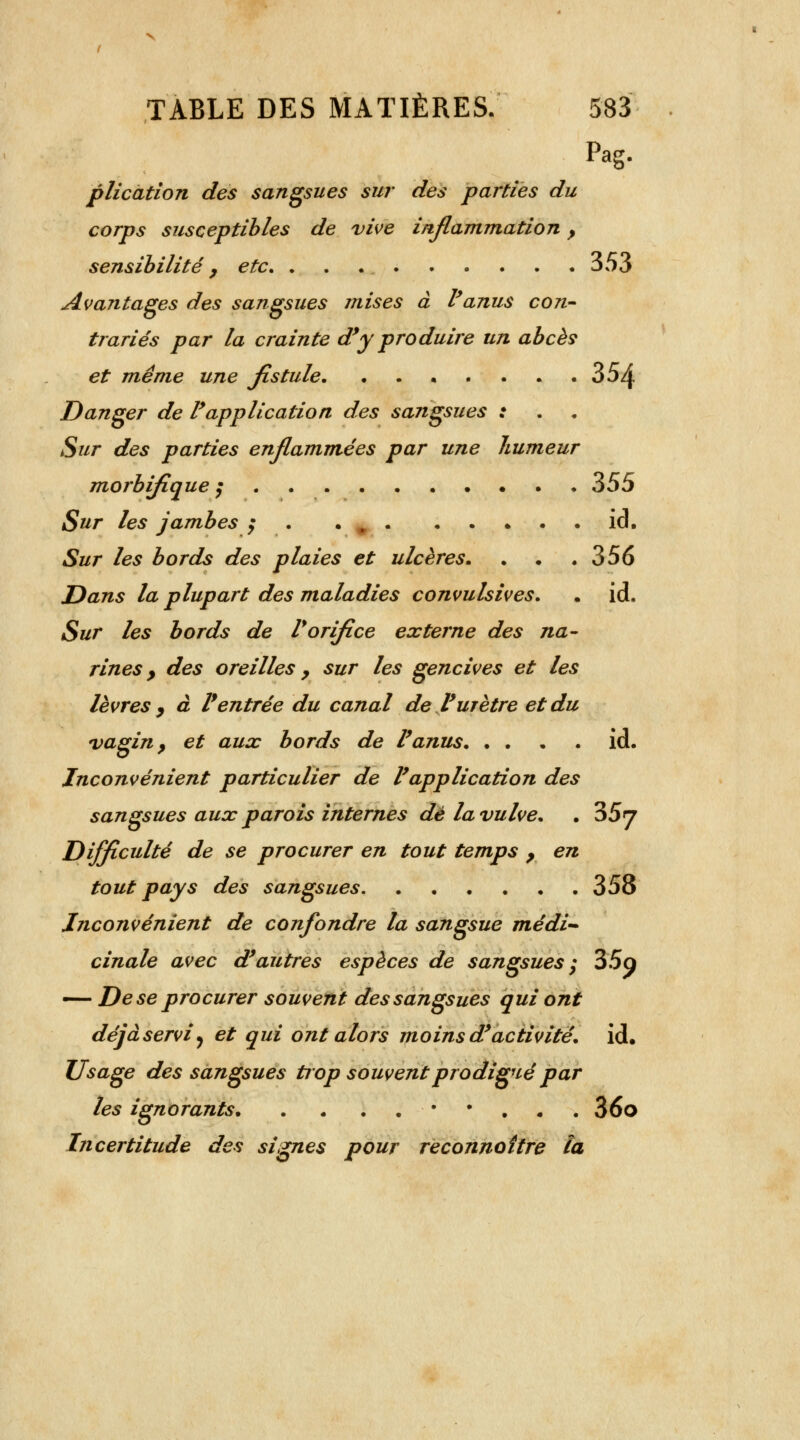 TABLE DES MATIÈRES. 583
Pag.
plication des sangsues sur des parties du
corps susceptibles de vive inflammation,
sensibilité, etc. . . . . . . . . . 353
Avantages des sangsues mises à l'anus con-
trariés par la crainte d'y produire un abcès
et même une fistule. . . . . . . . . 354
Danger de l'application des sangsues : . .
Sur des parties enflammées par une humeur
morbifique; . . . . . . . . . . . 355
Sur les jambes; . . . . . . . . . . id.
Sur les bords des plaies et ulcères. . . . 356
Dans la plupart des maladies convulsives. . id.
Sur les bords de l'orifice externe des na-
rines, des oreilles, sur les gencives et les
lèvres, à l'entrée du canal de l'urètre et du
vagin, et aux bords de l'anus. . . . . id.
Inconvénient particulier de l'application des
sangsues aux parois internes de la vulve. . 357
Difficulté de se procurer en tout temps, en
tout pays des sangsues. . . . . . . 358
Inconvénient de confondre la sangsue médi-
cinale avec d'autres espèces de sangsues; 359
— De se procurer souvent des sangsues qui ont
déjà servi, et qui ont alors moins d'activité. id.
Usage des sangsues trop souvent prodigué par
les ignorants. . . . . . . . . . 360
Incertitude des signes pour reconnoître la